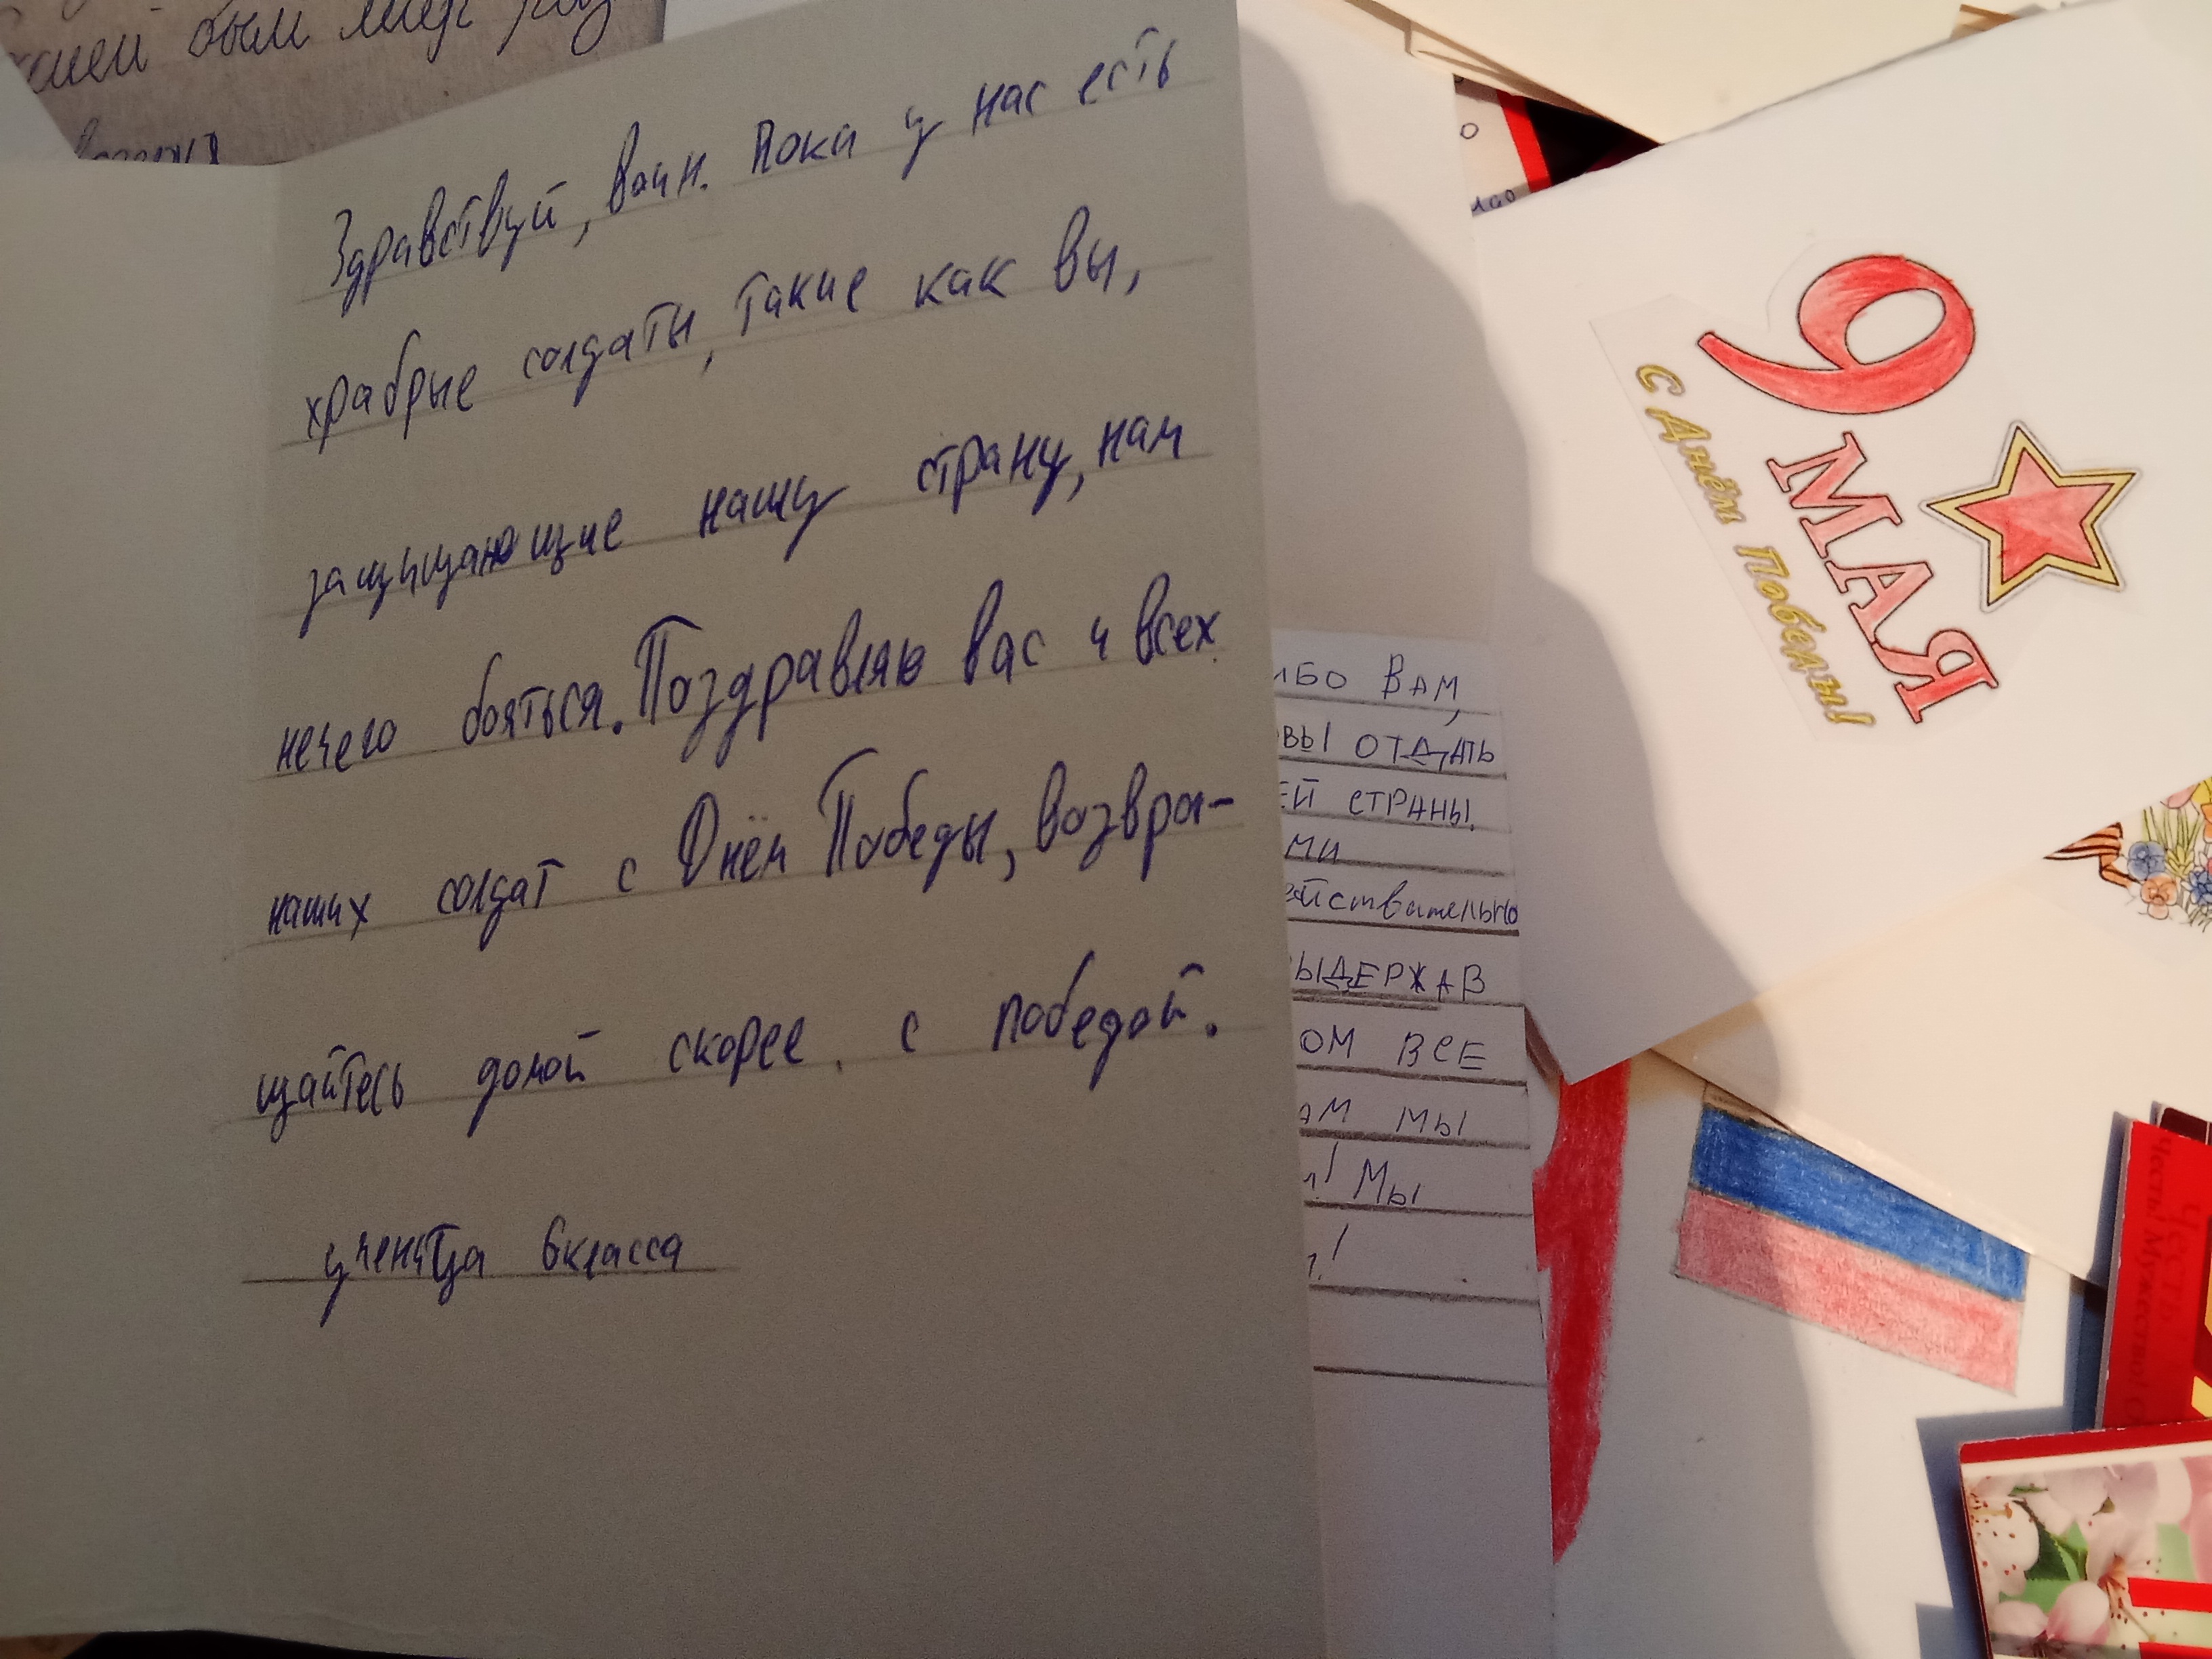 был мир
Здравствуй, воин. Пока у нас есть
храбрые солдаты, такие как вы,
защищающие нашу страну, нам
нечего бояться. Поздравляю вас и всех
наших солдат с Днём Победы, возвра-
щайтесь домой скорее с победой.
ученица 6 класса
ибо Вам,
овы отдать
ей страны.
ми
ействительно
ыдержав
ом все
ам мы
и! Мы
!
9
МАЯ
С Днём Победы!
Честь! Мужество!